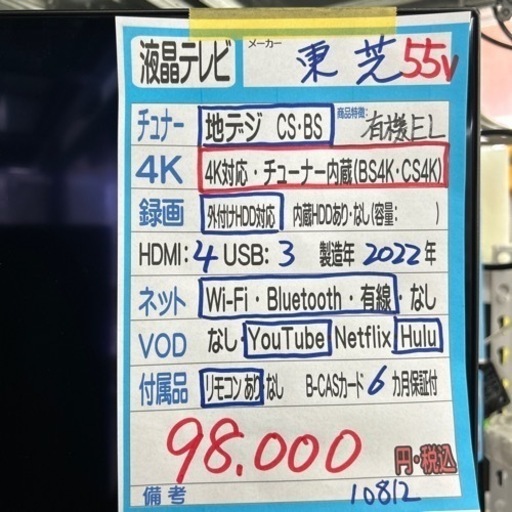 液晶テレビ メーカー 東芝 55v
チュナー 地デジ CS・BS 商品特徴: 有機EL
4K 4K対応・チューナー内蔵(BS4K・CS4K)
録画 外付けHDD対応 内蔵HDDあり・なし(容量: )
HDMI:4 USB:3 製造年 2022年
ネット Wi-Fi・Bluetooth・有線・なし
VOD なし・YouTube Netflix Hulu
付属品 リモコンあり なし B-CASカード 6カ月保証付
98.000 円・税込
備考 10812